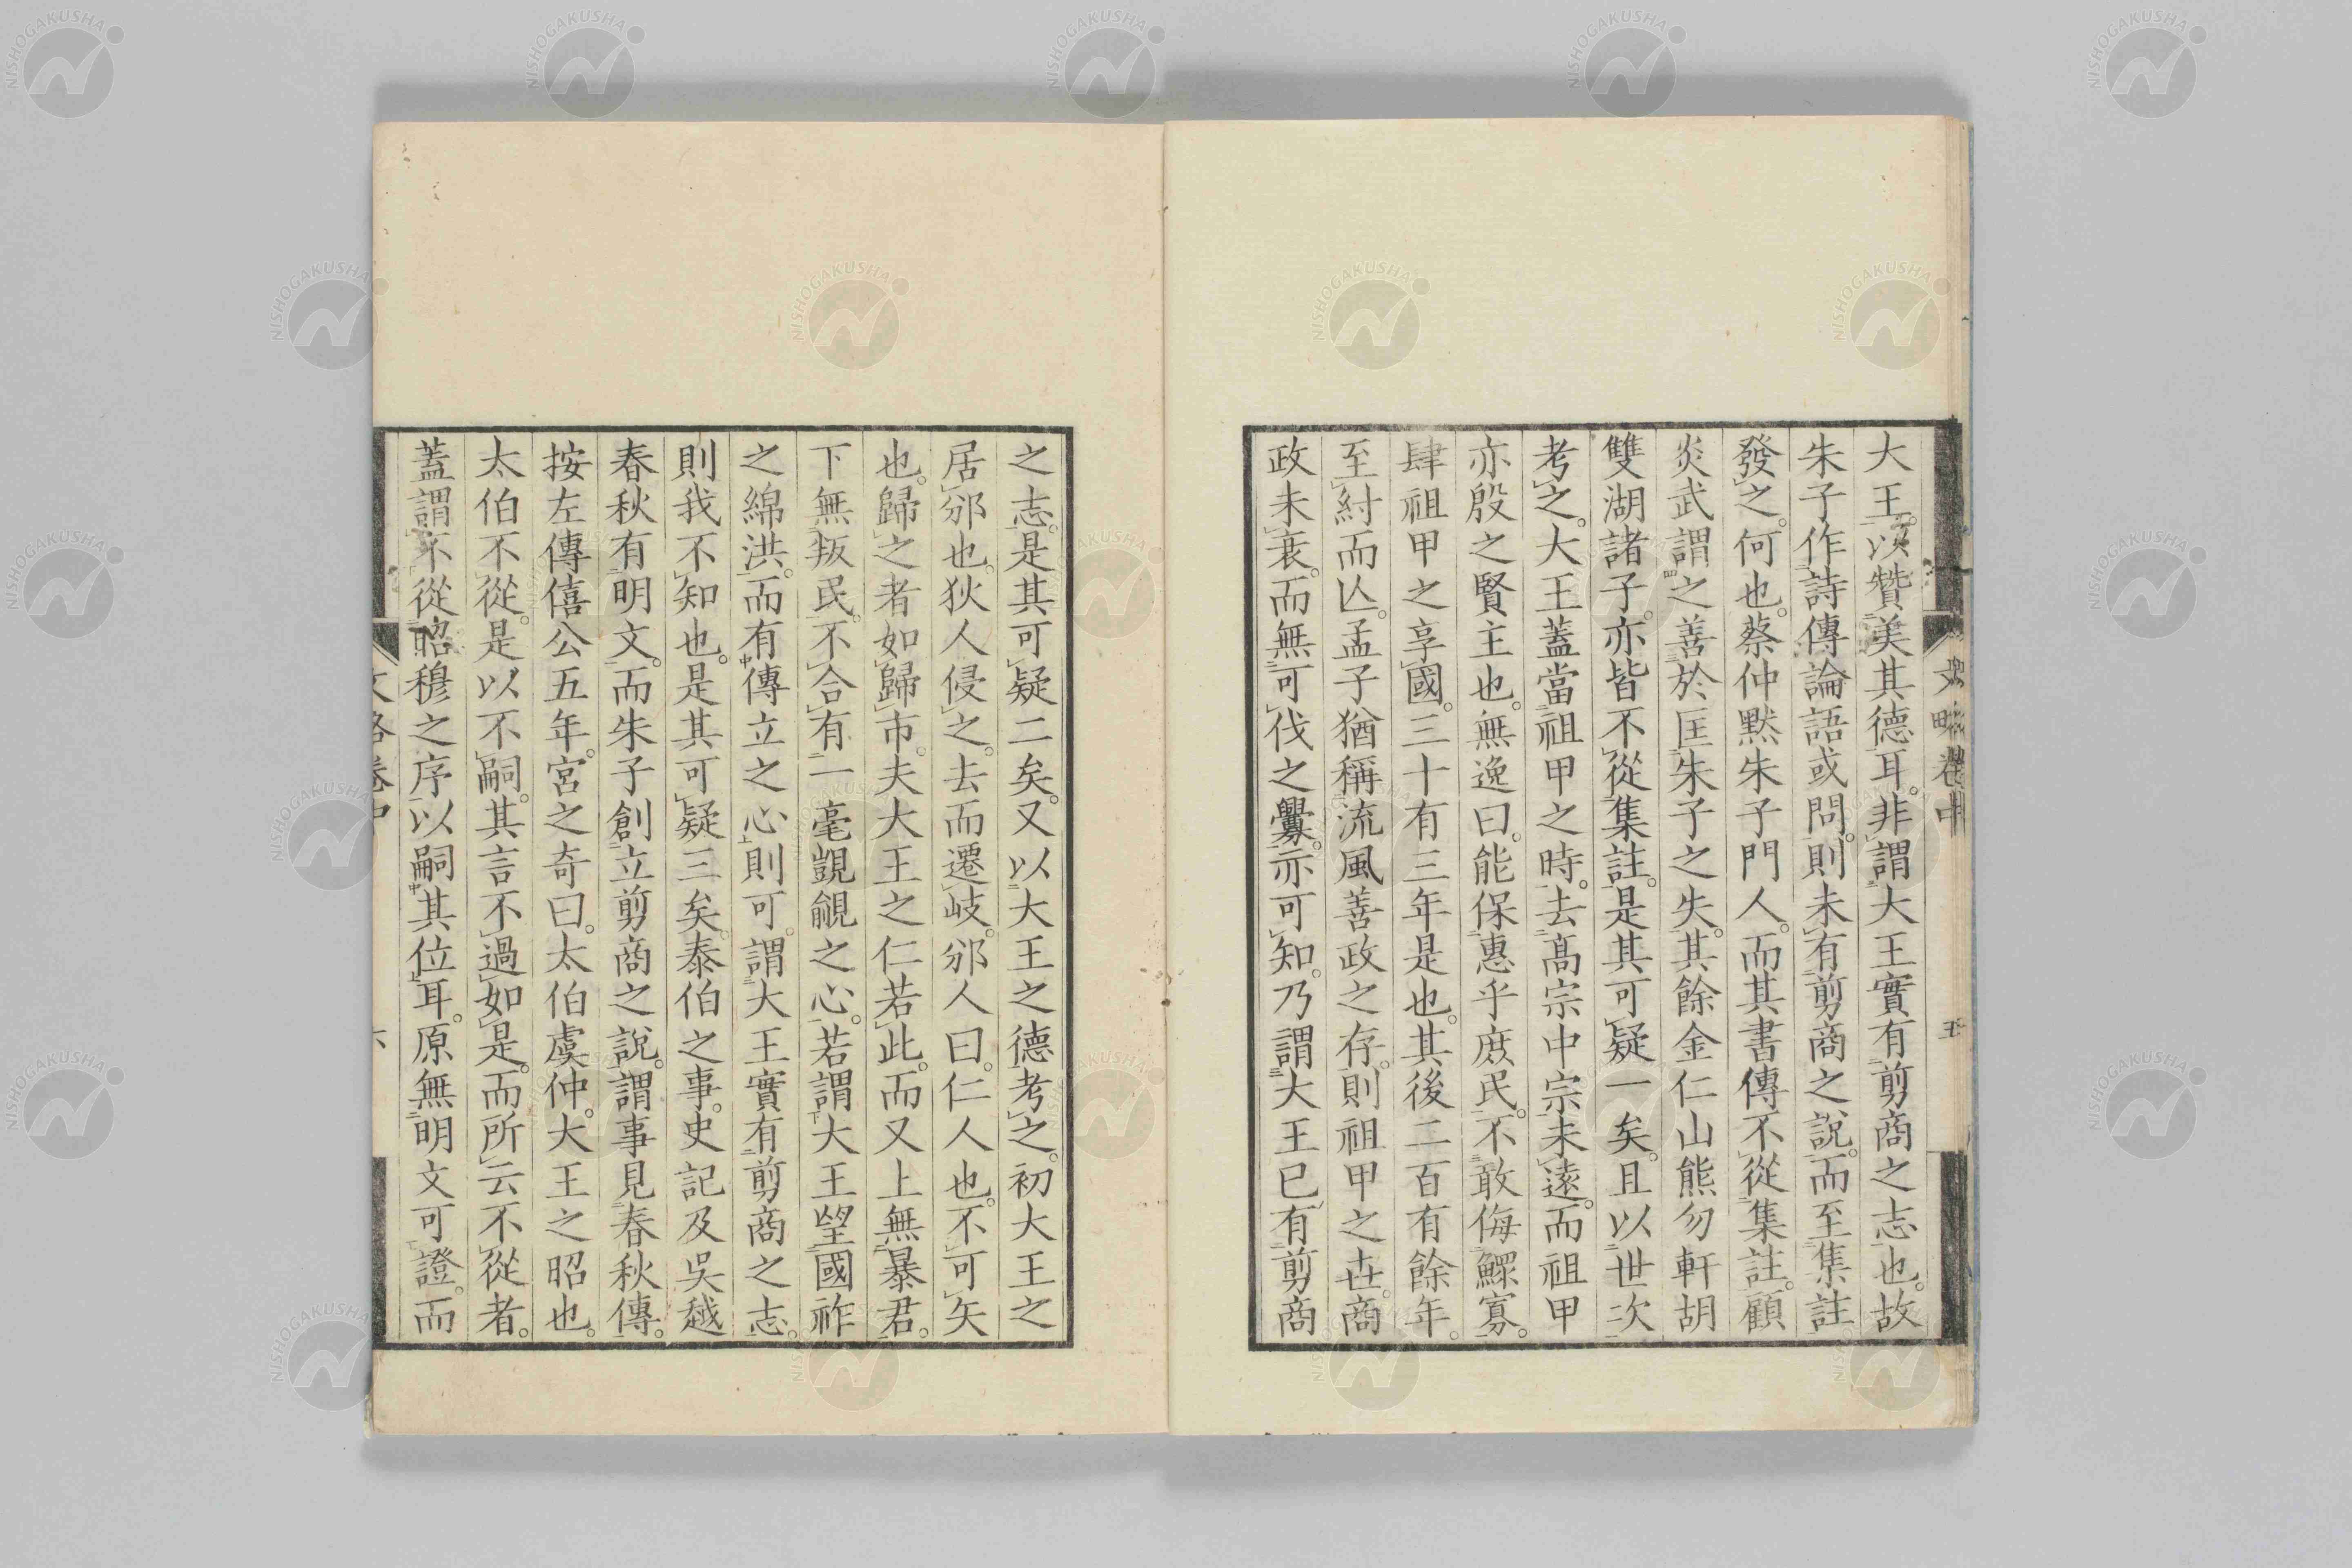 大王。以贊美其德耳。非謂大王實有剪商之志也。故
朱子作詩傳論語或問。則未有剪商之說。而至集註
發之。何也。蔡仲默朱子門人。而其書傳不從集註。顧
炎武謂之善於匡朱子之失。其餘金仁山熊勿軒胡
雙湖諸子。亦皆不從集註。是其可疑一矣。且以世次
考之。大王蓋當祖甲之時。去高宗中宗未遠。而祖甲
亦殷之賢主也。無逸曰。能保惠乎庶民。不敢侮鰥寡。
肆祖甲之享國。三十有三年是也。其後二百有餘年。
至紂而亾。孟子猶稱流風善政之存。則祖甲之世。商
政未衰。而無可伐之釁。亦可知。乃謂大王已有剪商
文略卷中
五
之志。是其可疑二矣。又以大王之德考之。初大王之
居邠也。狄人侵之。去而遷岐。邠人曰。仁人也。不可失
也。歸之者如歸市。夫大王之仁若此。而又上無暴君。
下無叛民。不合有一毫覬覦之心。若謂大王望國祚
之綿洪。而有傳立之心。則可。謂大王實有剪商之志。
則我不知也。是其可疑三矣。泰伯之事。史記及吳越
春秋有明文。而朱子創立剪商之說。謂事見春秋傳。
按左傳僖公五年。宮之奇曰。太伯虞仲。大王之昭也。
太伯不從。是以不嗣。其言不過如是。而所云不從者。
蓋謂不從昭穆之序。以嗣其位耳。原無明文可證。而
文略卷中
六
NISHOGAKUSHA